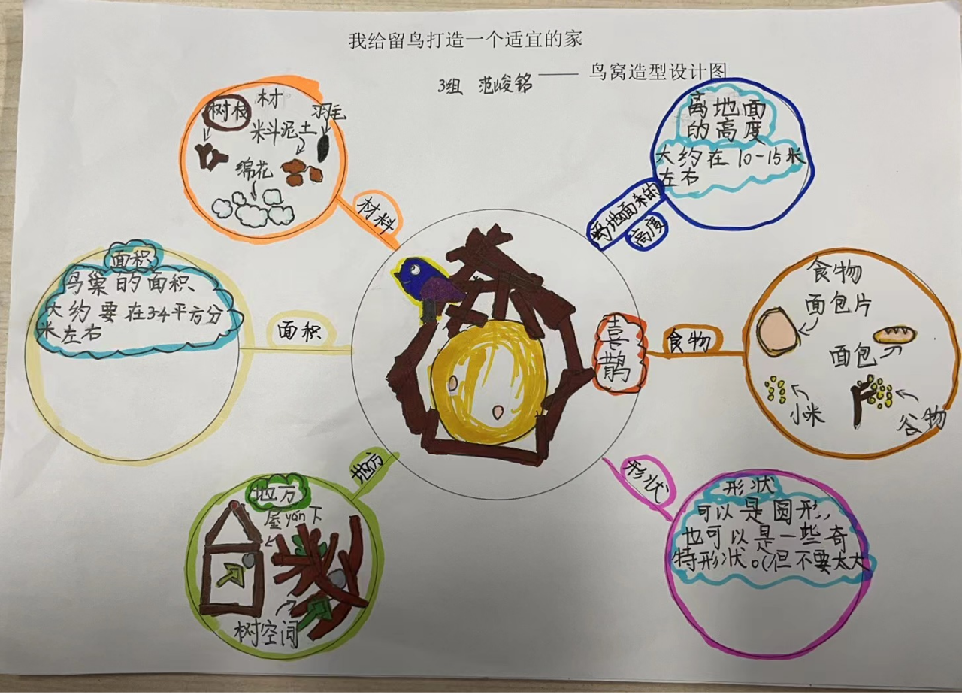 我给留鸟打造一个适宜的家
3组 范峻铭 —— 鸟窝造型设计图
材
树枝
羽毛
米斗泥土
棉花
材料
离地面
的高度
大约在10-15米
左右
离地面来的
高度
面积
鸟巢的面积、
大约要在34平方分
米左右
面积
喜
鹊
食物
食物
面包片
面包
小米
谷物
地方
地方
屋yán下
树空间
形状
形状
可以是圆形,
也可以是一些奇
特形状。(但不要太大